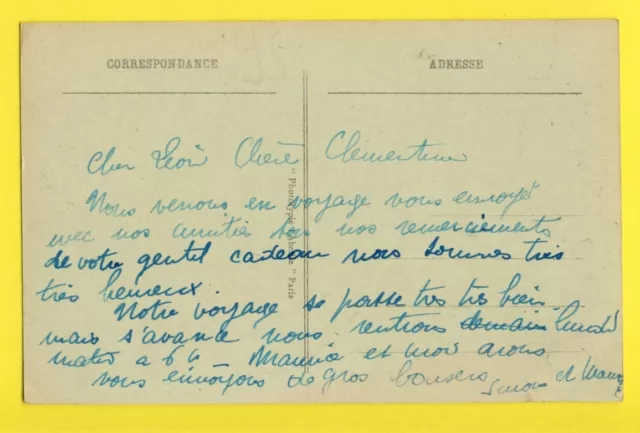 CORRESPONDANCE
ADRESSE
Cher Léon Chère Clementine
Nous venons en voyage vous envoyé
avec nos amitiés nos remerciements
de votre gentil cadeau nous sommes très
très heureux.
Notre voyage se passe tres tres bien
mais s'avance nous rentrons demain lundi
matin a 6h Maurice et moi avons
vous envoyons de gros baisers
et
" Phototypie " Paris